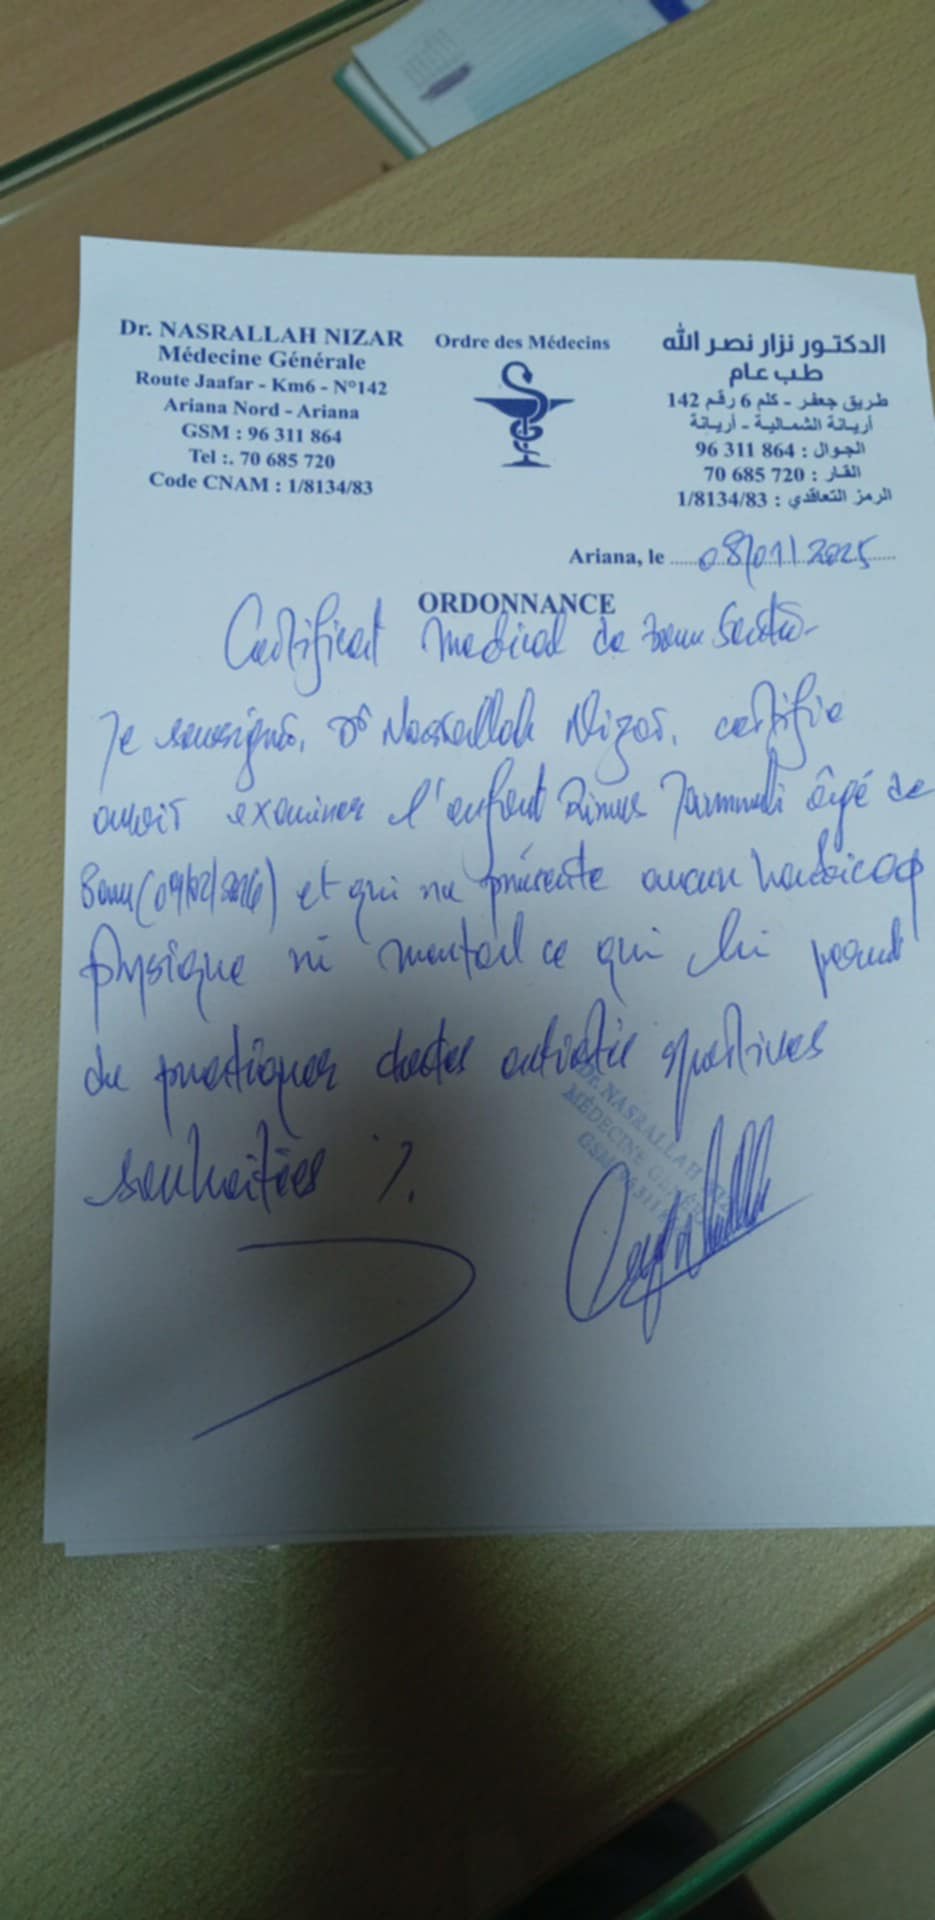 Dr. NASRALLAH NIZAR
Médecine Générale
Route Jaafar - Km6 - N°142
Ariana Nord - Ariana
GSM : 96 311 864
Tel :. 70 685 720
Code CNAM : 1/8134/83
Ordre des Médecins
الدكتور نزار نصر الله
طب عام
طريق جعفر - كلم 6 رقم 142
أريانة الشمالية - أريانة
الجوال : 864 311 96
القار : 720 685 70
الرمز التعاقدي : 1/8134/83
Ariana, le 08/01/2025
ORDONNANCE
Certificat medical de bonne
Je soussigné, Dr Nasrallah Nizar, certifie
avoir examiner l'enfant âgé de
et qui ne présente aucun handicap
physique ni mental ce qui lui permet
de pratiquer toutes activités sportives
souhaitées
Dr. NASRALLAH
MÉDECINE
GSM